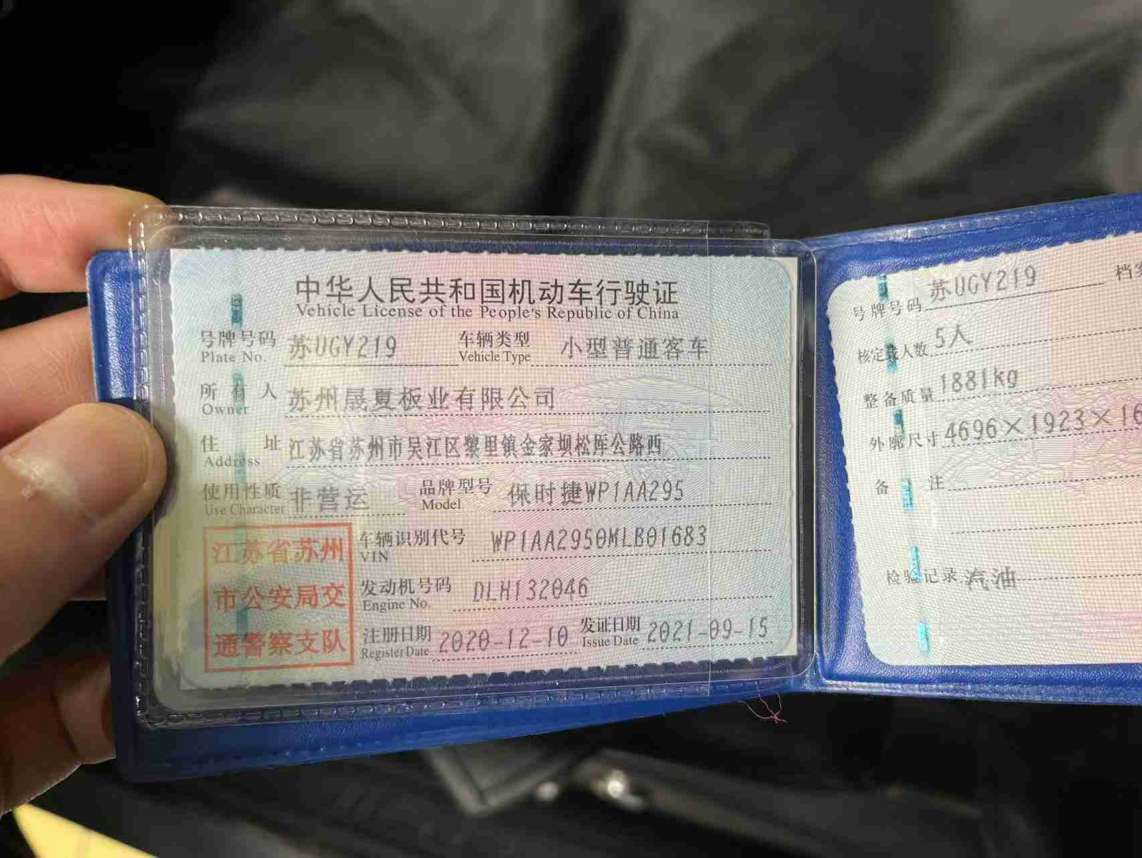 中华人民共和国机动车行驶证
Vehicle License of the People's Republic of China
号牌号码 苏UGY219 车辆类型 小型普通客车
Plate No. Vehicle Type
所有人 苏州晟夏板业有限公司
Owner
住址 江苏省苏州市吴江区黎里镇金家坝松厍公路西
Address
使用性质 非营运 品牌型号 保时捷WP1AA295
Use Character Model
江苏省苏州
市公安局交
通警察支队
车辆识别代号 WP1AA2950MLB01683
VIN
发动机号码 DLH132046
Engine No.
注册日期 2020-12-10 发证日期 2021-09-15
Register Date Issue Date
号牌号码 苏UGY219 档
核定载人数 5人
整备质量 1881kg
外廓尺寸 4696×1923×16
备注
检验记录 汽油